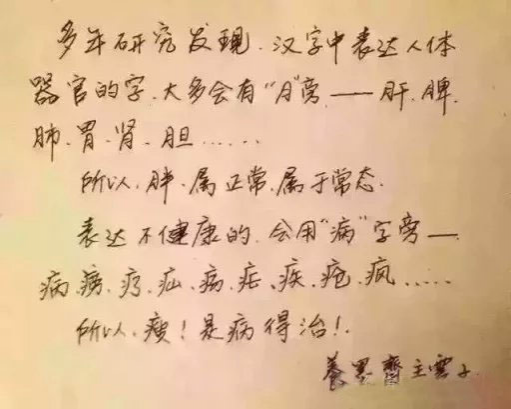 多年研究发现.汉字中表达人体
器官的字.大多会有“月”旁——肝.脾.
肺.胃.肾.胆......
所以.胖.属正常.属于常态.
表达不健康的.会用“病”字旁——
病.疗.疝.病.疟.疾.疮.疯......
所以.瘦!是病得治!.
養墨齋主雲子